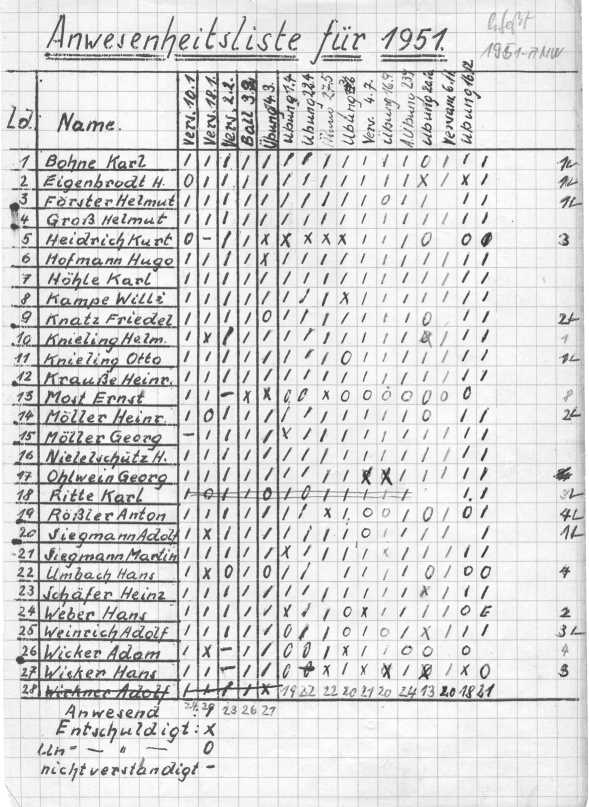 Erfaßt
1951-ANW
Anwesenheitsliste für 1951.
Ld. Name. Vers. 10.1 Vers. 18.1. Vers. 2.2. Ball 3.2. Übung 4.3. Übung 1.4 Übung 22.4 27.5 Übung Vers. 4.7. Übung 16.9 A.Übung 23.9 Übung Versam 6.11 Übung 16.12
1 Bohne Karl / / / / / / / / / / / / O / / / 1L
2 Eigenbrodt H. O / / / / / / / / / / / X / X / 1L
3 Förster Helmut / / / / / / / / / / O / / / / / 1L
4 Groß Helmut / / / / / / / / / / / / / / / /
5 Heidrich Kurt O – / / X X X X X / / / O O O 3
6 Hofmann Hugo / / / / X / / / / / / / / / / /
7 Höhle Karl / / / / / / / / / / / / / / / /
8 Kampe Willi / / / / / / / / X / / / / / / /
9 Knatz Friedel / / / / O / / / / / / / O / / 2L
10 Knieling Helm. / X / / / / / / / / / / / / / 1
11 Knieling Otto / / / / / / / / O / / / / / / / 1L
12 Krauße Heinr. / / / / / / / / / / / / / / / /
13 Most Ernst / / – X X O O X O O O O O O O 8
14 Möller Heinr. / O / / / / / / / / / / O / / 2L
15 Möller Georg – / / / / X / / / / / / / / / /
16 Nielelschütz H. / / / / / / / / / / / / / / / /
17 Ohlwein Georg / / / / / / / / / X X / / / / /
18 Ritte Karl / O / / O / O / / / / / . / 3L
19 Rößler Anton / / / / / / / X / O O / O / O / 4L
20 Siegmann Adolf / X / / / / / / / O / / / / / / 1L
21 Siegmann Martin / / / / / X / / / / X / / / / /
22 Umbach Hans / X O / O / / / / / / O / O O 4
23 Schäfer Heinz / / / / / / / / / / / / X / / /
24 Weber Hans / / / / / X / / O X / / / / O E 2
25 Weinrich Adolf / / / / / O / / O / O / X / / / 3L
26 Wicker Adam / X – / / O O / X / / O O O 4
27 Wicker Hans / / – / / O O X / X X / X / X O 3
28 Wickner Adolf / / / / X 19 22 22 20 21 20 24 13 20 18 21
Anwesend : / 23 26 27
Entschuldigt: X
Un- — " — O
nicht verständigt –